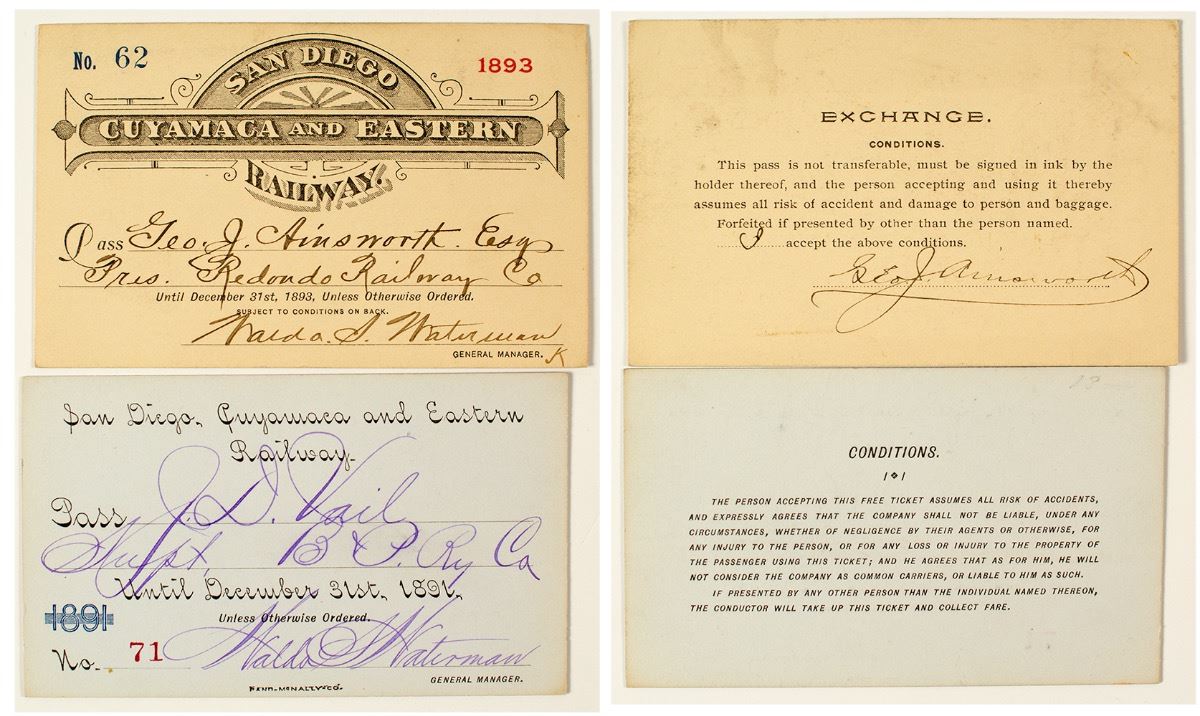 No. 62
1893
SAN DIEGO
CUYAMACA AND EASTERN
RAILWAY.
Pass Geo. J. Ainsworth. Esq
Pres. Redondo Railway Co
Until December 31st, 1893, Unless Otherwise Ordered.
SUBJECT TO CONDITIONS ON BACK.
Waldo. S. Waterman
GENERAL MANAGER. K
EXCHANGE.
CONDITIONS.
This pass is not transferable, must be signed in ink by the
holder thereof, and the person accepting and using it thereby
assumes all risk of accident and damage to person and baggage.
Forfeited if presented by other than the person named.
I accept the above conditions.
Geo J. Ainsworth
San Diego, Cuyamaca and Eastern
Railway.
Pass J. D. Vail
Supt. B & P. Ry Co
Until December 31st, 1891,
1891
Unless Otherwise Ordered.
No. 71 Waldo S Waterman
GENERAL MANAGER.
RAND-MCNALLY & CO.
13
CONDITIONS.
THE PERSON ACCEPTING THIS FREE TICKET ASSUMES ALL RISK OF ACCIDENTS,
AND EXPRESSLY AGREES THAT THE COMPANY SHALL NOT BE LIABLE, UNDER ANY
CIRCUMSTANCES, WHETHER OF NEGLIGENCE BY THEIR AGENTS OR OTHERWISE, FOR
ANY INJURY TO THE PERSON, OR FOR ANY LOSS OR INJURY TO THE PROPERTY OF
THE PASSENGER USING THIS TICKET; AND HE AGREES THAT AS FOR HIM, HE WILL
NOT CONSIDER THE COMPANY AS COMMON CARRIERS, OR LIABLE TO HIM AS SUCH.
IF PRESENTED BY ANY OTHER PERSON THAN THE INDIVIDUAL NAMED THEREON,
THE CONDUCTOR WILL TAKE UP THIS TICKET AND COLLECT FARE.